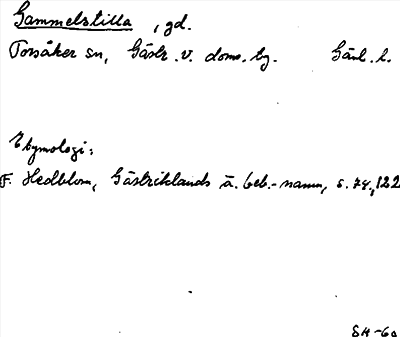 Gammelstilla , gd.
Torsåker sn, Gästr. v. doms. hg. Gävl. l.
Etymologi:
F. Hedblom, Gästriklands ä. beb.-namn, s. 78, 122
SH-60